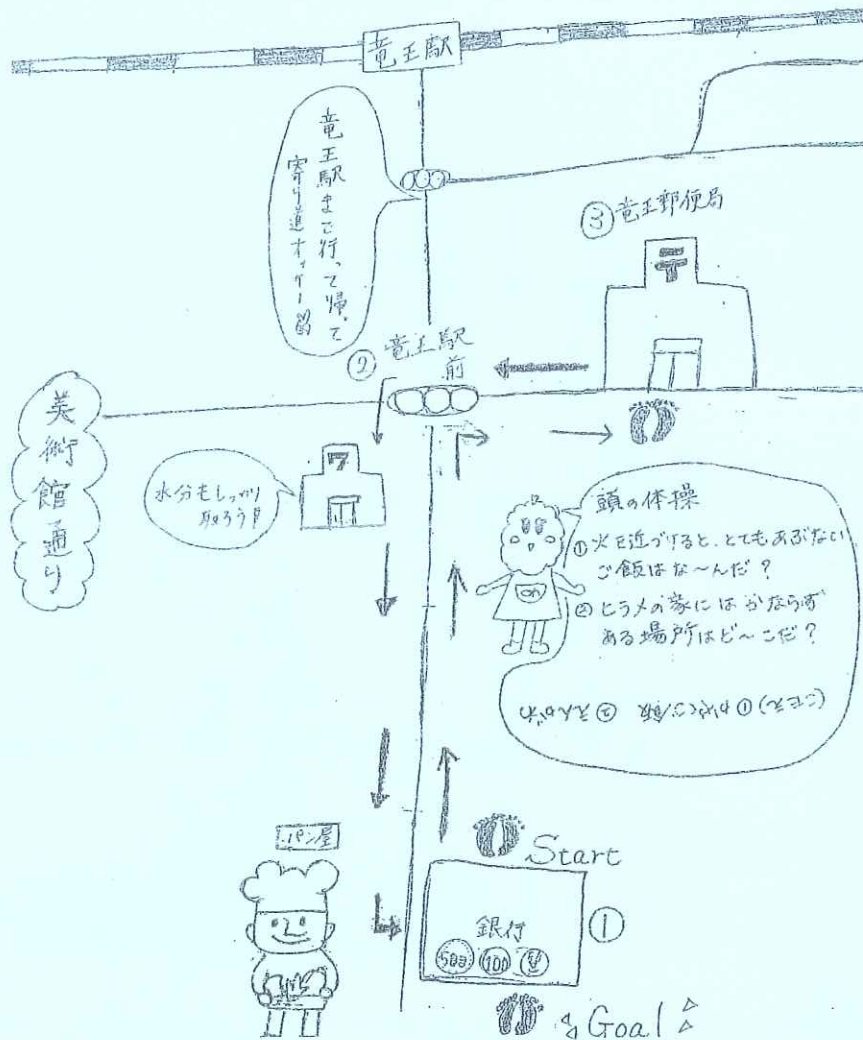 竜王駅
竜王駅まで行って帰って
寄り道オッケー
③竜王郵便局
〒
②竜王駅
前
美術館通り
ワ
水分もしっかり
取ろう!!
頭の体操
①火を近づけると、とてもあぶない
ご飯はな〜んだ?
②ヒラメの家にはかならず
ある場所はど〜こだ?
(こたえ)①かやくご飯 ②えんがわ
パン屋
Start
銀行
①
500 100 ¥
Goal